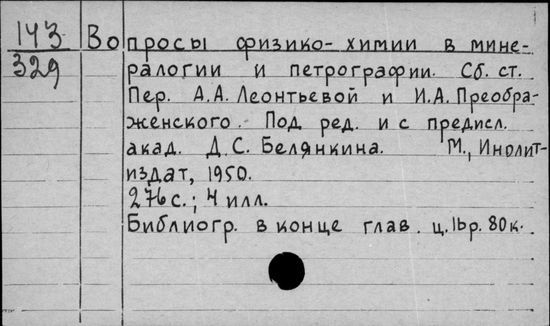 143 Вопросы физико-химии в мине-
329 ралогии и петрографии. Сб. ст.
Пер. А.А. Леонтьевой и И.А. Преобра-
женского. Под ред. и с предисл.
акад. Д.С. Белянкина. М., Инолит-
издат, 1950.
276 с.; 4 илл.
Библиогр. в конце глав. ц. 16р. 80к.